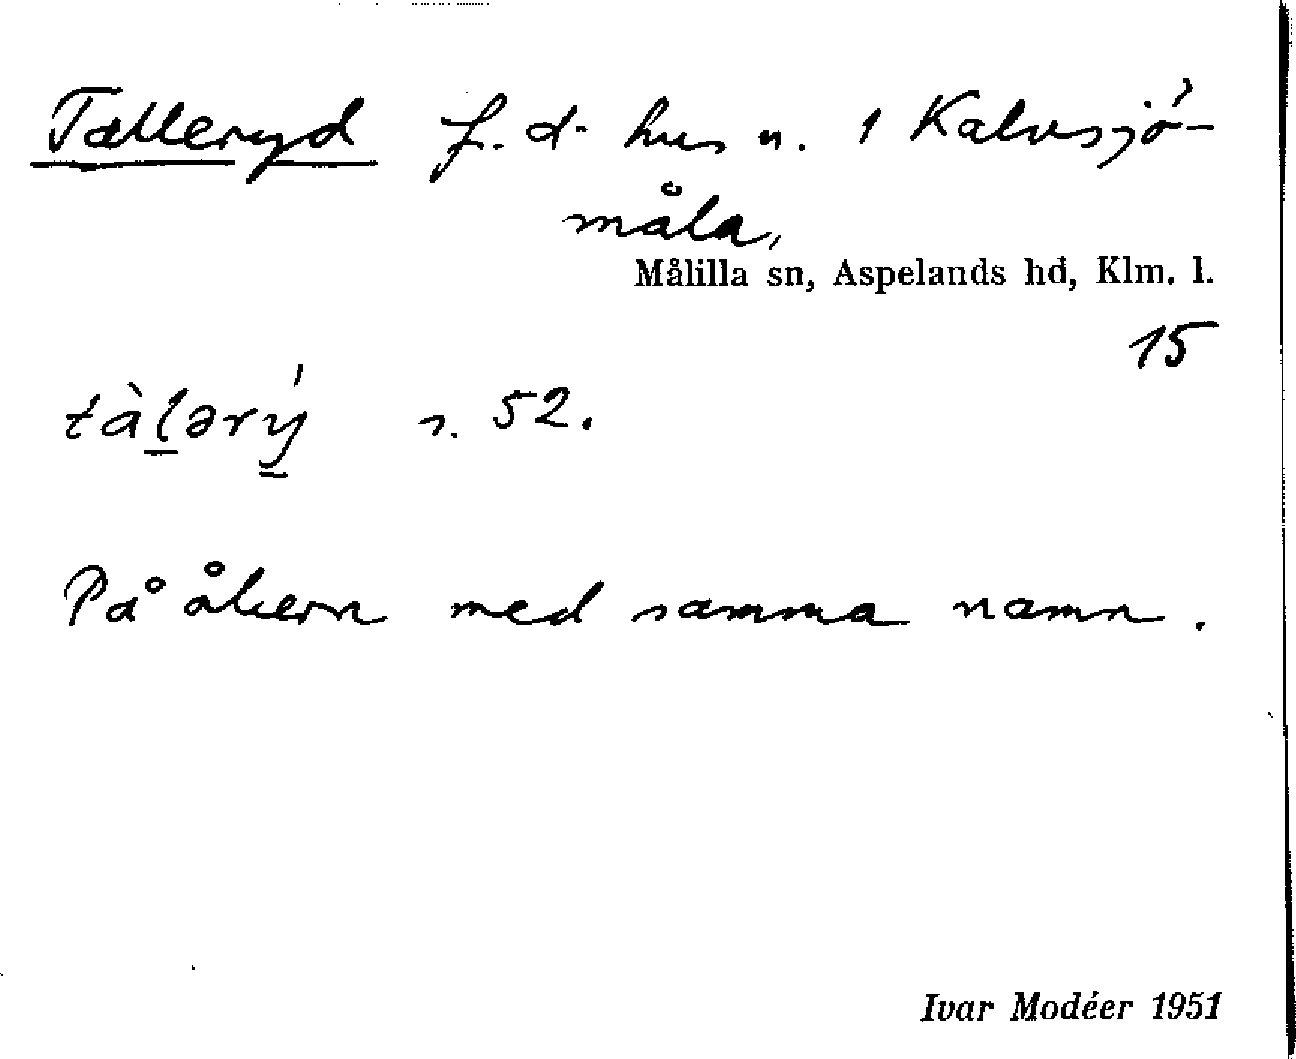 Talleryd f. d. hus n. 1 Kalvsjö-
måla,
Målilla sn, Aspelands hd, Klm. l.
15
tàl̠ərý̳ s. 52.
På åkern med samma namn.
Ivar Modéer 1951